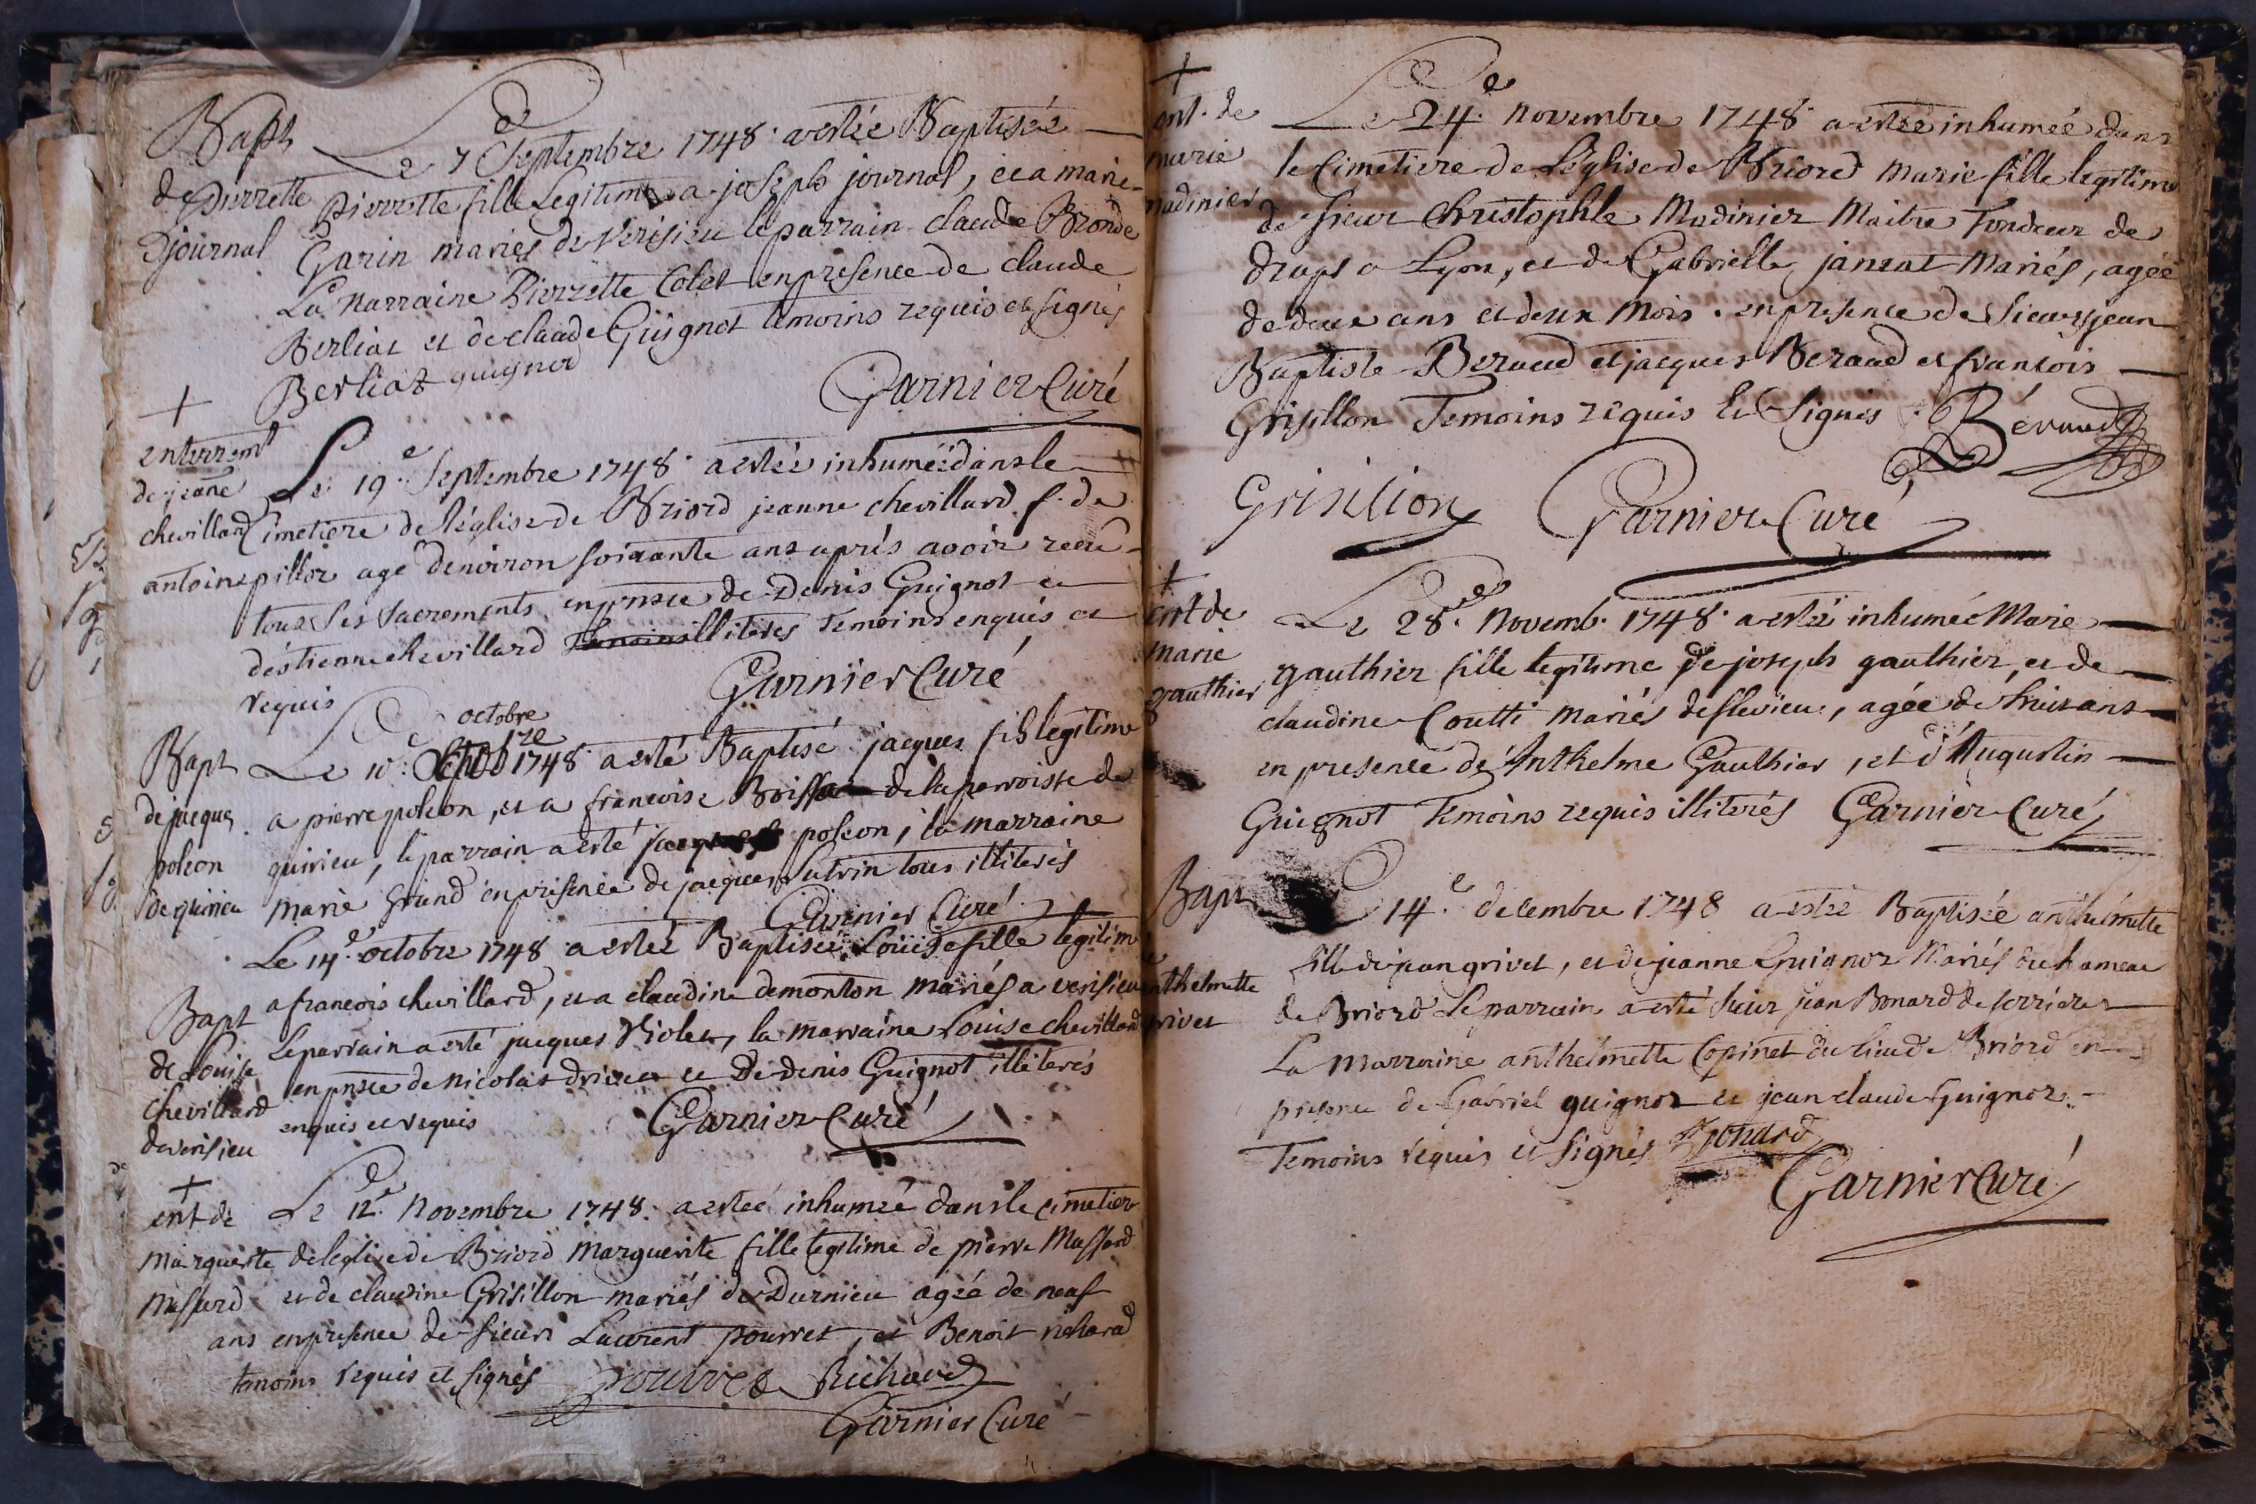 Bapt
de pierrette
journal
Le 7e Septembre 1748. a estée Baptisée
Pierrette fille Legitime a joseph journal, et a marie
Garin mariés de Verisieu le parrain claude Bronde
La Marraine Pierrette Colet en presence de claude
Berliat et de claude Guignot temoins requis et signés
Berliat guignod
Garnier Curé
enterremt
de jeane
chevillard
Le 19e Septembre 1748. a estée inhumée dans le
Cimetiere de l'église de Briord jeanne chevillard f. de
antoine pillor agé d'environ soixante ans aprés avoir receu
tous ses Sacrements en pnsce de Denis Guignot et
d'éstienne chevillard illiterés temoins enquis et
requis
Garnier Curé
Bapt
de jacques
poleon
de quirieu
octobre
Le 10e 1748 a esté Baptisé jacques fils legitime
a pierre poleon, et a francoise de la parroisse de
quirieu, le parrain a esté poleon, la marraine
marie Grand en presence de jacques Lutrin tous illiterés
Garnier Curé
Bapt
de Louise
chevillard
de verisieu
Le 14e octobre 1748 a estée Baptisée Louise fille legitime
a francois chevillard, et a claudine demonton mariés a verisieu
Le parrain a esté jacques Violet, la marraine Louise chevillard
en pnsce de nicolas drivet et De denis Guignot illiterés
enquis et requis
Garnier Curé
ent de
marguerite
Massard
Le 12e Novembre 1748. a estée inhumée dans le cimetier
de l'eglise de Briord Marguerite fille legitime de pierre Massard
et de claudine Grisillon mariés de Durnieu agée de neuf
ans en presence de sieurs Laurent pourret, et Benoit richard
temoins requis et signés
pourret Richard
Garnier Curé
ent. de
marie
madinier
Le 24e. Novembre 1748. a estée inhumée dans
le Cimetiere de L'église de Briord marie fille legitime
de sieur Christophle Madinier Maitre Tondeur de
draps a Lyon, et de Gabrielle janzat Mariés, agée
de deux ans et deux mois. en presence de Sieurs jean
Baptiste Beraud et jacques Beraud et francois
Grisillon Temoins requis Et Signés. Béraud
Grisilion Garnier Curé
ent de
marie
gauthier
Le 28e. Novemb. 1748. a estée inhumée Marie
gauthier fille legitime de joseph gauthier, et de
claudine Coutti mariés de flevieu, agée de huit ans
en presence d'Anthelme Gauthier, et d'Augustin
Guignot Temoins requis illiterés Garnier Curé
Bapt
anthelmette
grivet
14e. decembre 1748 a estée Baptisée anthelmette
fille de jean grivet, et de jeanne Guignot Mariés du hameau
de Briord Le parrain a esté sieur jean Bonard de serrieres
La Marraine anthelmette Copinet du lieu de Briord en
presence de Gabriel guignot et jean claude Guignot
Temoins requis et signés Bonard
Garnier Curé